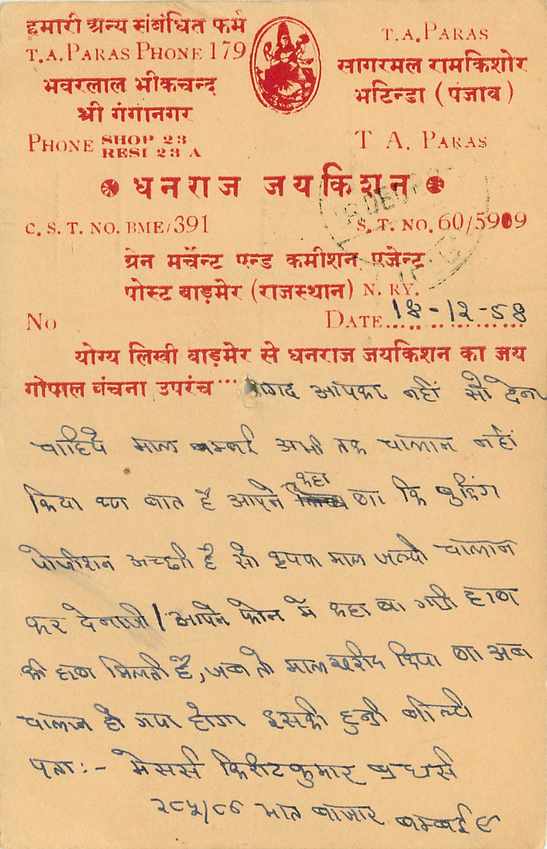 हमारी अन्य संबंधित फर्म
T.A. PARAS PHONE 179
भवरलाल भीकचन्द
श्री गंगानगर
PHONE SHOP 23
RESI 23 A
T.A. PARAS
सागरमल रामकिशोर
भटिन्डा (पंजाब)
T A. PARAS
धनराज जयकिशन
C. S. T. NO. BME/391
S. T. NO. 60/5909
ग्रेन मर्चेन्ट एन्ड कमीशन एजेन्ट
पोस्ट बाड़मेर (राजस्थान) N. RY.
NO
DATE 18-12-58
योग्य लिखी बाड़मेर से धनराज जयकिशन का जय
गोपाल बंचना उपरंच आपका नहीं सो देना
चाहिये माल बम्बई अभी तक चालान नहीं
किया क्या बात है आपने कहा था कि बुकिंग
पोजीशन अच्छी है सो कृपया माल जल्दी चालान
कर देनाजी। आपने फोन में कहा था गाडी हाथ
की हाथ मिलती है, जब तो माल खरीद किया था अब
चालान हो गया होगा इसकी हुन्डी बील्टी
पता:- मेसर्स किरीटकुमार ब्रधर्स
२८५/८६ भात बाजार बम्बई ९